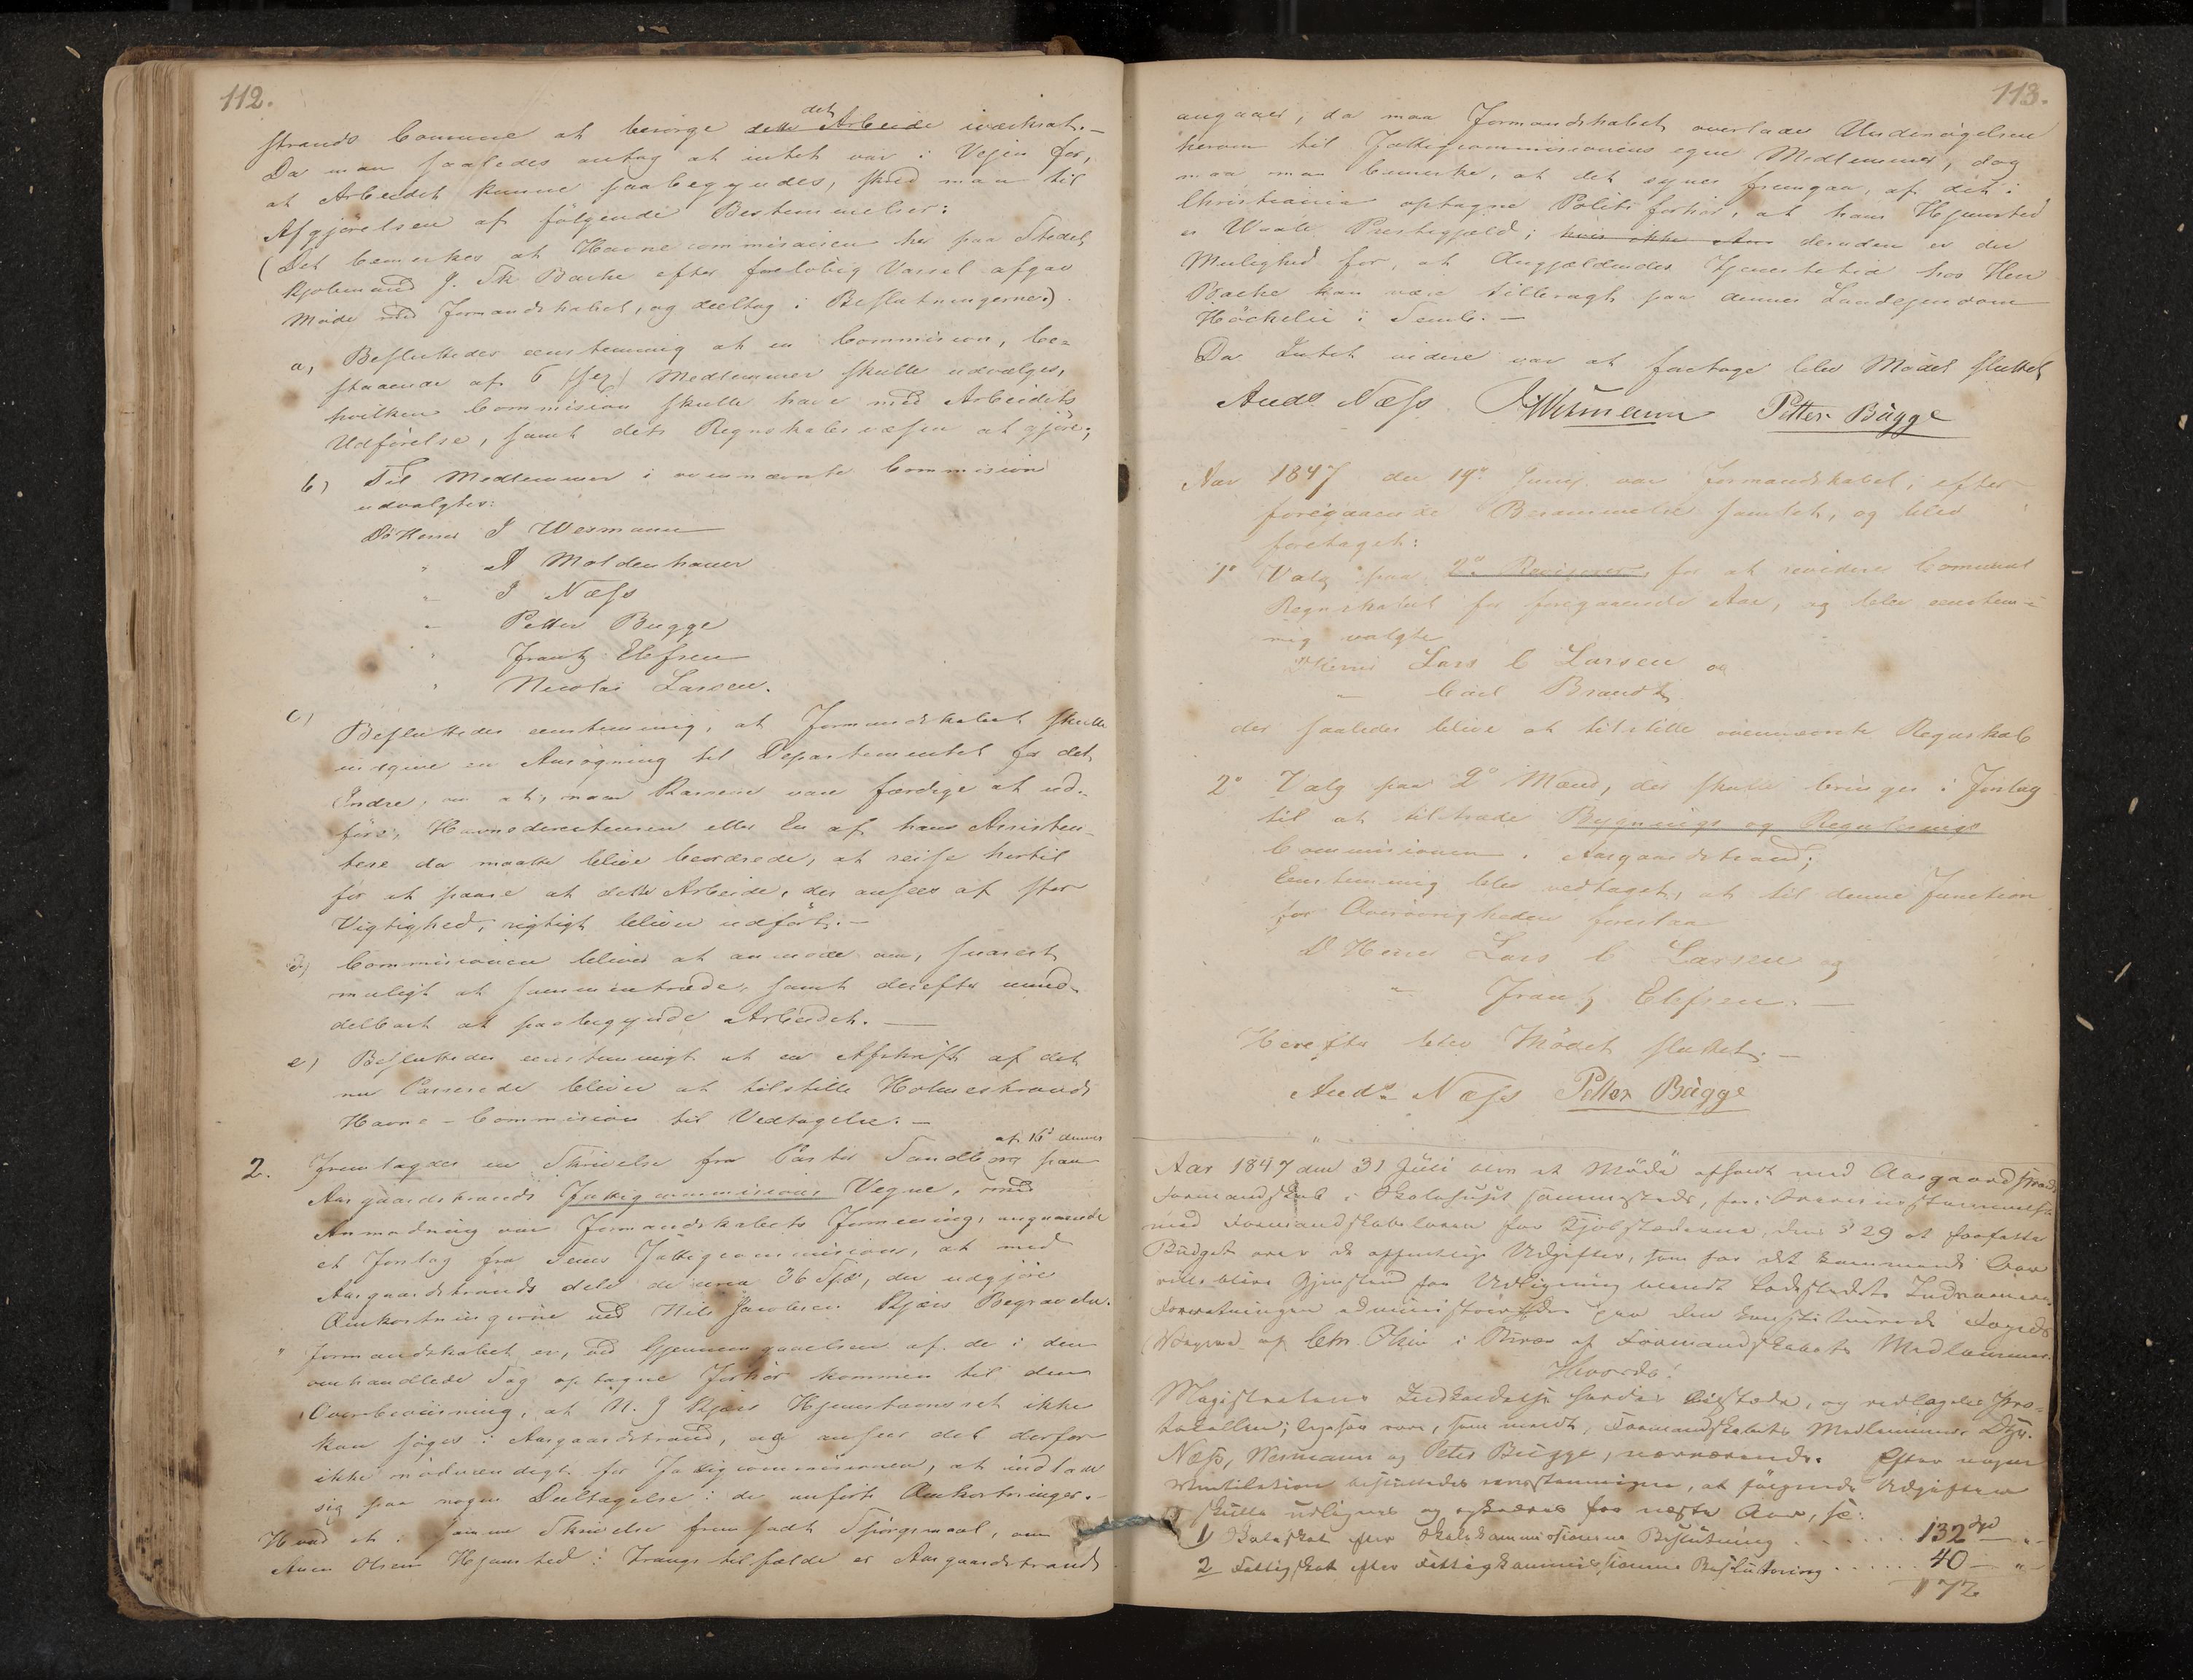 112.
strands Comune at besörge dette det Arbeide iværksat.–
Da man saaledes antog at intet var i Vejen for,
at Arbeidet kunne paabegyndes, skred man til
Afgjörelsen af fölgende Bestemmelser:
(Det bemerkes at Havnecommisionen her paa Stedet
Kjobmand J. Fk Backe efter forelobig Varsel afgav
Möde med Formandskabet, og deeltog i Beslutningerne.)
a, Besluttedes eenstemmig at en Commision, be=
staaende af 6 (sex) Medlemmer skulle udvælges,
hvilken Commision skulle have med Arbeidets
Udförelse, samt dets Regnskabsvæsen at gjöre;
b) Til Medlemmer i ovennævnte Commision
udvalgtes:
D'Herrer J Wesmann
" A Moldenhauer
" J Næss
" Petter Bugge
" Frantz Ellefsen
" Nicolai Larsen.
c) Besluttedes eenstemmig, at Formandskabet skulle
indgive en Ansögning til Departementet for det
Indre, om at, naar Karrene vare færdige at ud-
före, Havnedirecteuren eller En af hans Assisten-
tere da maatte blive beordrede, at reise hertil
for at paasee at dette Arbeide, der ansees af stor
Vigtighed, rigtigt bliver udfört.–
d) Commisionen bliver at anmode om, snarest
muligt at sammentræde, samt derefter umid-
delbart at paabegynde Arbeidet.–
e) Besluttedes eenstemmigt at en Afskrift af det
nu Passerede bliver at tilstille Holmestrands
Havne-Commision til Vedtagelse.–
2. Fremlagdes en Skrivelse fra Pastor Sandberg af 16d dennes paa
Aasgaardstrands Fattigcommisions Vegne, med
Anmodning om Formandskabets Formening, angaaende
et Forslag fra Sems Fattigcommision, at med
Aasgaardstrands dele de circa 36 Spd, der udgjöre
Omkostningerne ved Nils Jacobsen Kjærs Begravelse.
" Formandskabet er, ved Gjennemgaaelsen af de i den
omhandlede Sag optagne Forhör kommen til den
Overbeviisning, at N. J Kjærs Hjemstavnsret ikke
kan söges i Aasgaardstrand, og anseer det derfor
ikke nödvendigt for Fattigcommisionen, at indlade
sig paa nogen Deeltagelse i de anförte Omkostninger.–
Hvad et i samme Skrivelse fremsadt Spörgsmaal, om
Olsens Hjemsted i Trangs tilfælde er Aasgaardstrand
113.
angaaer, da maa Formandskabet overlade Undersögelsen
herom til Fattigcommisionens egne Medlemmer, dog
maa man bemerke, at det synes fremgaa, af det i
Christiania optagne Politi forhör, at hans Hjemsted
er Waale Prestegjæld; hvis ikke desuden er der
Mulighed for, at Angjældendes Tjenestetid hos Herr
Backe kan være tillbragt paa dennes Landejendom
i Semb.–
Da Intet videre var at foretage blev Mödet sluttet
Ands Næss JWesmann Petter Bügge
Aar 1847 den 19de Junij var Formandskabet, efter
foregaaende Berammelse samlet, og blev
foretaget:
1o Valg paa 2de Revisorer for at revidere Comunal
Regnskabet for foregaaende Aar, og blev eenstem-
mig valgte
D'Herrer Lars C Larsen og
" Carl Brandt
der saaledes blive at tilstille ovennævnte Regnskab
2o Valg paa 2o Mænd, der skulle bringes i Forslag
til at tiltræde Bygnings og Regulerings
Commisionen i Aasgaardstrand;
Eenstemmig blev vedtaget, at til denne Function
for Överövrigheden foreslaa
D'Herrer Lars C Larsen og
" Frantz Ellefsen.–
Herefter blev Mödet sluttet.–
Ands Næss Petter Bügge
Aar 1847 den 31 Jüli blev et Möde afholdt med Aasgaardstrands
Formandskab i Skolehuset sammesteds, for i Overensstemmelse
med Formandskabsloven for Kjöbstæderne dens § 29 at forfatte
Budget over de offentlige Udgifter, som for det kommende Aar
ville blive Gjenstand for Udligning blandt Ladestedets Indvaanere.
Forretningen administreredes paa den konstituerede Fogeds
Vegne af Chr. Olsen i Overvær af Formandskabets Medlemmer.
Hvorda!
Magistratens Indkaldelse havdes tilstede, og vedlagdes Pro-
tokollen; ligesom vare, som meldt, Formandskabets Medlemmer DHr.
Næss, Wesmann og Peter Bügge, nærværende. Efter nogen
Ventilation besluttedes eenstemmigen, at fölgende Udgifter
skulle udlignes og opkræves for næste Aar, so:
1) Skoleskat efter Skolekommissionens Beslutning . . . . . . 132 Spd – " –
2 Fattigskat efter Fattigkommissionens Beslutning . . . . . 40 – " –
172